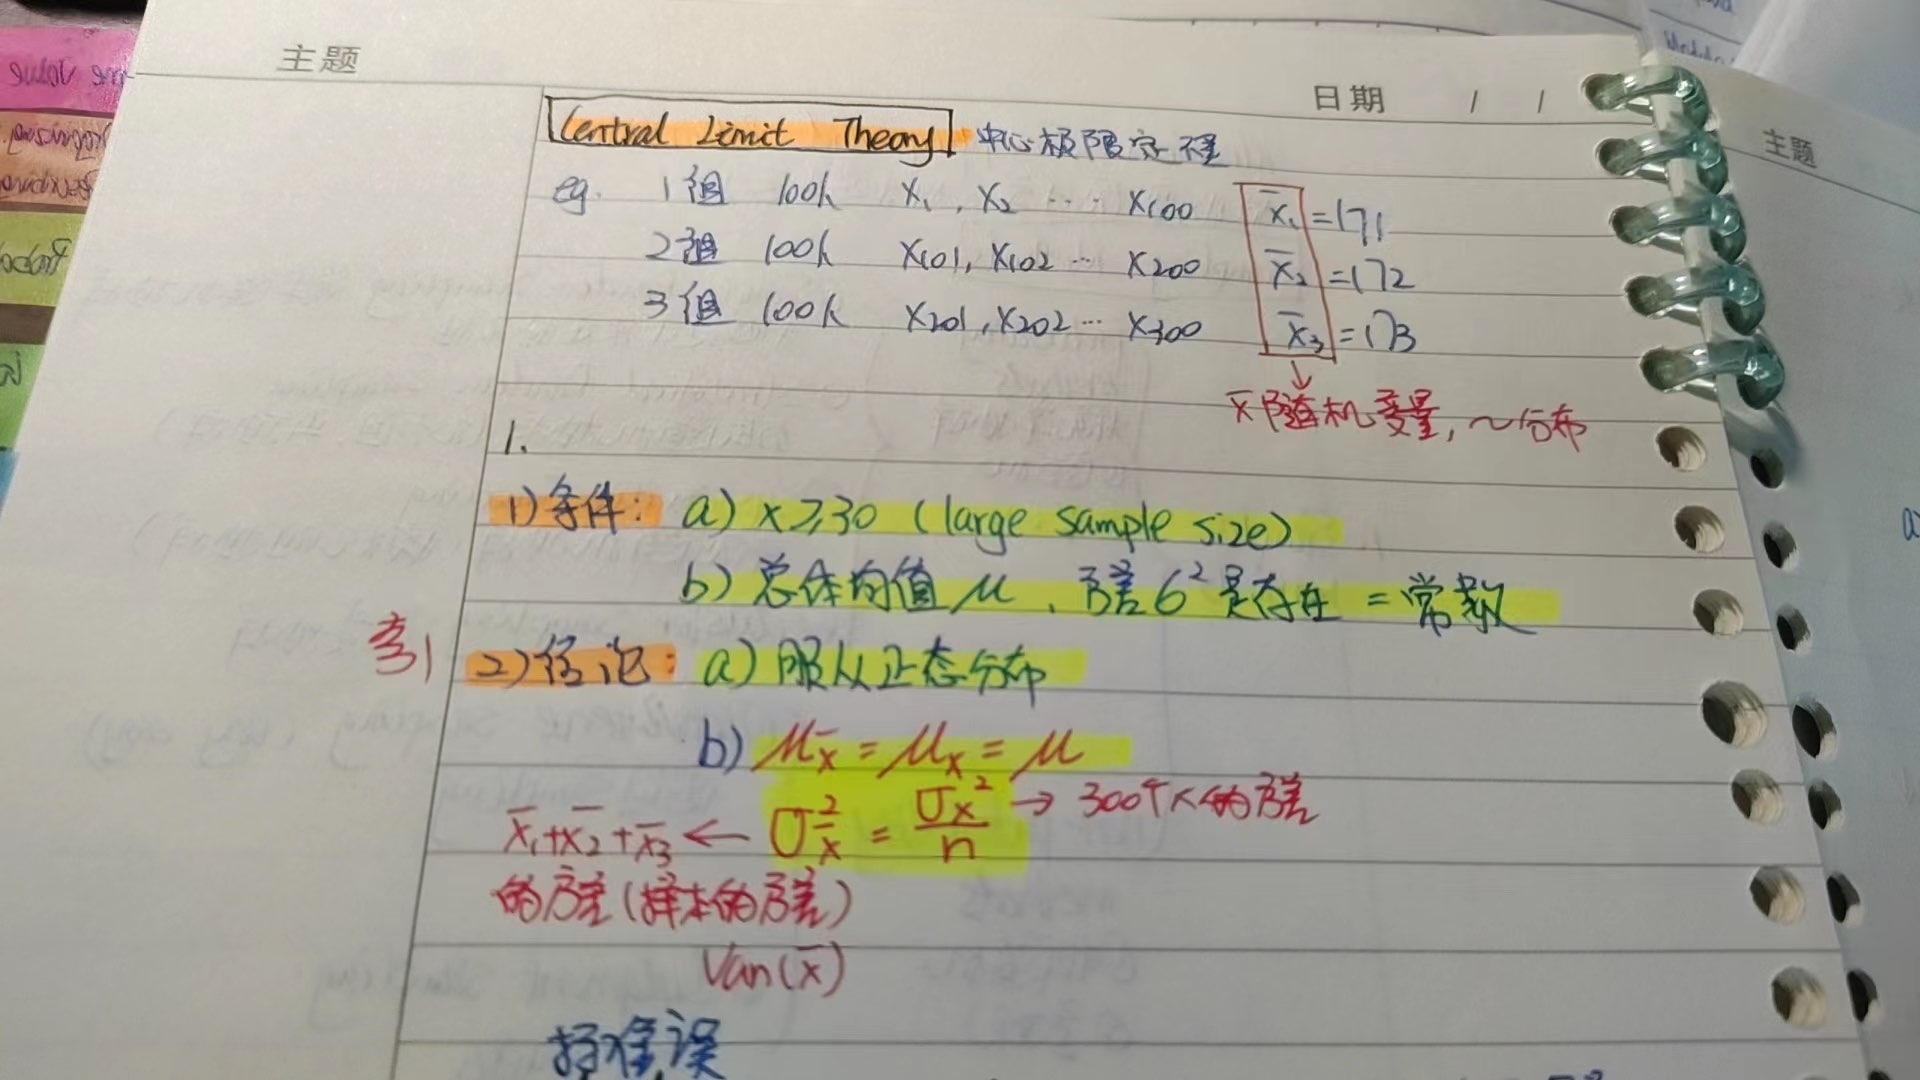 主题
日期 / /
Central Limit Theory 中心极限定理
eg. 1组 100人 x₁, x₂ ... x₁₀₀ x̄₁=171
2组 100人 x₁₀₁, x₁₀₂ ... x₂₀₀ x̄₂=172
3组 100人 x₂₀₁, x₂₀₂ ... x₃₀₀ x̄₃=173
↓
x̄随机变量, ~分布
1.
1)条件: a) x≥30 (large sample size)
b) 总体均值μ、方差6²是存在=常数
考1 2)结论: a) 服从正态分布
b) μx̄ = μx = μ
x̄₁+x̄₂+x̄₃ ← σ²x̄ = σx²/n → 300个人的方差
的方差(样本的方差)
Var(x̄)
标准误
主题